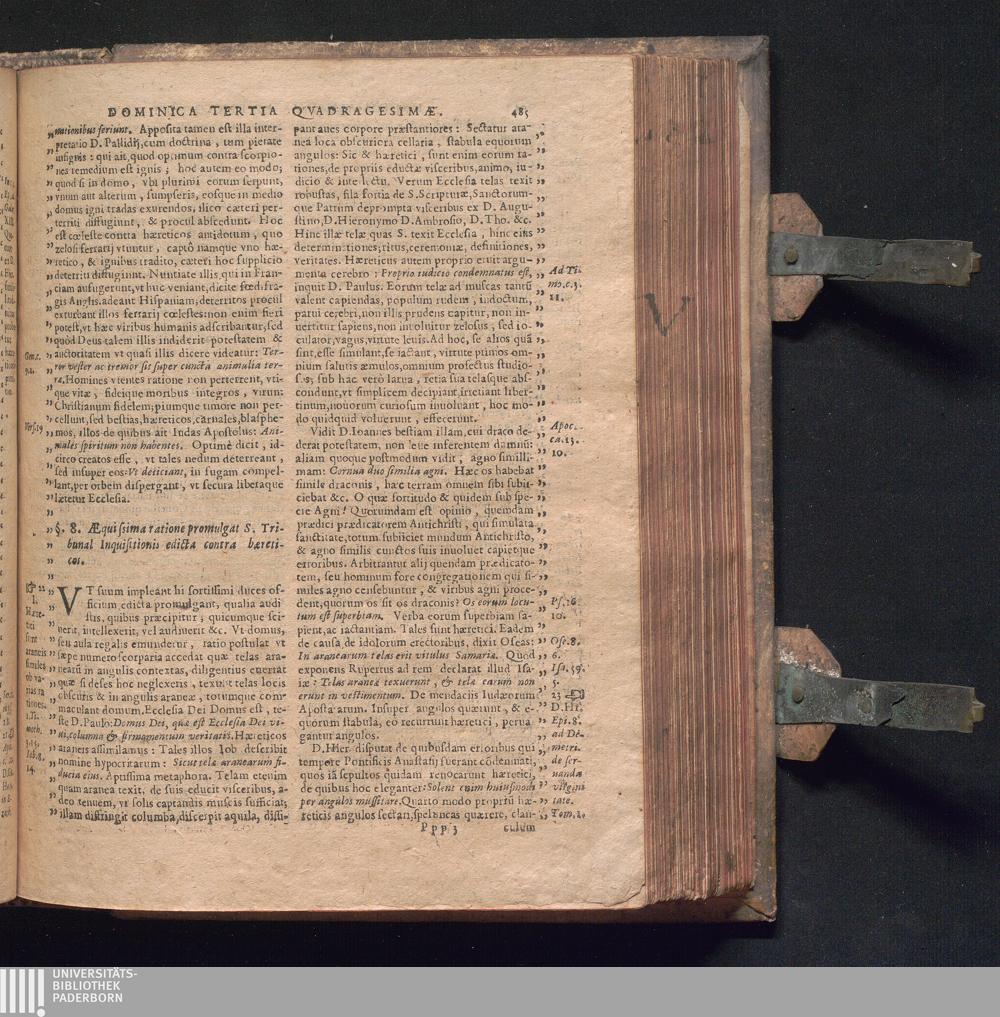 DOMINICA TERTIA QVADRAGESIMÆ. 485
rationibus feriunt. Apposita tamen est illa inter-
pretatio D. Palladij, cum doctrina, tum pietate
insignis: qui ait, quod optimum contra scorpio-
nes remedium est ignis; hoc autem eo modo;
quod si in domo, vbi plurimi eorum serpunt,
vnum aut alterum, sumpseris, eosque in medio
domus igni tradas exurendos, ilico cæteri per-
territi diffugiunt, & procul abscedunt. Hoc
est cœleste contra hæreticos antidotum, quo
zelosi ferrarij vtuntur, capto namque vno hæ-
retico, & ignibus tradito, cæteri hoc supplicio
deterriti diffugiunt. Nuntiate illis, qui in Fran-
ciam aufugerunt, vt huc veniant, dicite fœdifra-
gis Anglis, adeant Hispaniam, deterritos procul
exturbant illos ferrarij cœlestes: non enim fieri
potest, vt hæc viribus humanis adscribantur, sed
quòd Deus talem illis indiderit potestatem &
auctoritatem vt quasi illis dicere videatur: Ter-
ror vester ac tremor sit super cuncta animalia ter-
ræ. Homines vtentes ratione non perterrent, vti-
que vitæ, fideique moribus integros, virum
Christianum fidelem; piumque timore non per-
cellunt, sed bestias, hæreticos, carnales, blasphe-
mos, illos de quibus ait Iudas Apostolus: Ani-
males spiritum non habentes. Optimè dicit, id-
circo creatos esse, vt tales nedum deterreant,
sed insuper eos: Vt deiiciant, in fugam compel-
lant, per orbem dispergant, vt secura liberaque
lætetur Ecclesia.
§. 8. Æquissima ratione promulgat S. Tri-
bunal Inquisitionis edicta contra hæreti-
cos.
VT suum impleant hi fortissimi duces of-
ficium, edicta promulgant, qualia audi
stis, quibus præcipitur, quicumque sci-
uerit, intellexerit, vel audiuerit &c. Vt domus,
seu aula regalis emundetur, ratio postulat vt
sæpe numero scorparia accedat quæ telas ara-
nearũ in angulis contextas, diligentius euertat
quæ si deses hoc neglexerit, texunt telas locis
obscuris & in angulis araneæ, totumque com-
maculant domum. Ecclesia Dei Domus est, te-
ste D. Paulo: Domus Dei, quæ est Ecclesia Dei vi-
ui, columna & firmamentum veritatis. Hæreticos
araneis assimilamus: Tales illos Iob describit
nomine hypocritarum: Sicut telæ aranearum fi-
ducia eius. Aptissima metaphora. Telam etenim
quam aranea texit, de suis educit visceribus, a-
deo tenuem, vt solis captandis muscis sufficiat;
illam distringit columba, discerpit aquila, dissi-
pant aues corpore præstantiores: Sectatur ara-
nea loca obscuriora cellaria, stabula equorum
angulos: Sic & hæretici, sunt enim eorum ra-
tiones, de propriis eductæ visceribus, animo, iu-
dicio & intellectu. Verum Ecclesia telas texit
robustas, fila fortia de S. Scripturæ, Sanctorum-
que Patrum deprompta visceribus ex D. Augu-
stino, D. Hieronymo D. Ambrosio, D. Tho. &c.
Hinc illæ telæ quas S. texit Ecclesia, hinc eius
determinationes, ritus, ceremoniæ, definitiones,
veritates. Hæreticus autem proprio eruit argu-
menta cerebro: Proprio iudicio condemnatus est,
inquit D. Paulus. Eorum telæ ad muscas tantũ
valent capiendas, populum rudem, indoctum,
parui cerebri, non illis prudens capitur, non in-
uertitur sapiens, non inuoluitur zelosus, sed io-
culator, vagus, virtute leuis. Ad hoc, se alios quã
sint, esse simulant, se iactant, virtute primos om-
nium salutis æmulos, omnium profectus studio-
sos; sub hac verò larua, retia sua telasque abs-
condunt, vt simplicem decipiant, irretiant liber-
tinum, nouorum curiosum inuoluant, hoc mo-
do quidquid voluerunt, effecerunt.
Vidit D. Ioannes bestiam illam, cui draco de-
derat potestatem, non leue inferentem damnũ:
aliam quoque postmodum vidit, agno simili-
mam: Cornua duo similia agni. Hæc os habebat
simile draconis, hæc terram omnem sibi subij-
ciebat &c. O quæ fortitudo & quidem sub spe-
cie Agni! Quorumdam est opinio, quemdam
prædici prædicatorem Antichristi, qui simulata
sanctitate, totum subijciet mundum Antichristo,
& agno similis cunctos suis inuoluet capietque
erroribus. Arbitrantur alij quendam prædicato-
tem, seu hominum fore congregationem qui si-
miles agno censebuntur, & viribus agni proce-
dent, quorum os sit os draconis? Os eorum locu-
tum est superbiam. Verba eorum superbiam sa-
pient, ac iactantiam. Tales sunt hæretici. Eadem
de causa, de idolorum erectoribus, dixit Oseas:
In aranearum telas erit vitulus Samariæ. Quod
exponens Rupertus ad rem declarat illud Isa-
iæ: Telas araneæ texuerunt, & telæ earum non
erunt in vestimentum. De mendaciis Iudæorum
Apostatarum. Insuper angulos quærunt, & e-
quorum stabula, eò recurrunt hæretici, perua
gantur angulos.
D. Hier. disputat de quibusdam erroribus qui
tempore Pontificis Anastasij fuerant cõdemnati,
quos iã sepultos quidam renocarunt hæretici,
de quibus hoc eleganter: Solent enim huiusmodi
per angulos mussitare. Quarto modo propriũ hæ-
reticis angulos sectari, speluncas quærere, clan-
Ppp 3 culum
Gen. c.
9. 2.
Vers. 19
Hære-
tici
sunt
araneis
similes
ob va-
nas ra
tiones.
1. Ti-
moth.
3. 15.
Iob. 8.
14.
Ad Ti.
mo. c. 3.
11.
Apoc.
ca. 13.
10.
Ps. 16
10.
Ose. 8.
6.
Isa. 59.
5.
23
D. Hi.
Epi. 8.
ad De-
metri.
de ser-
uanda
virgini
tate.
Tom. 1.
V
UNIVERSITÄTS-
BIBLIOTHEK
PADERBORN